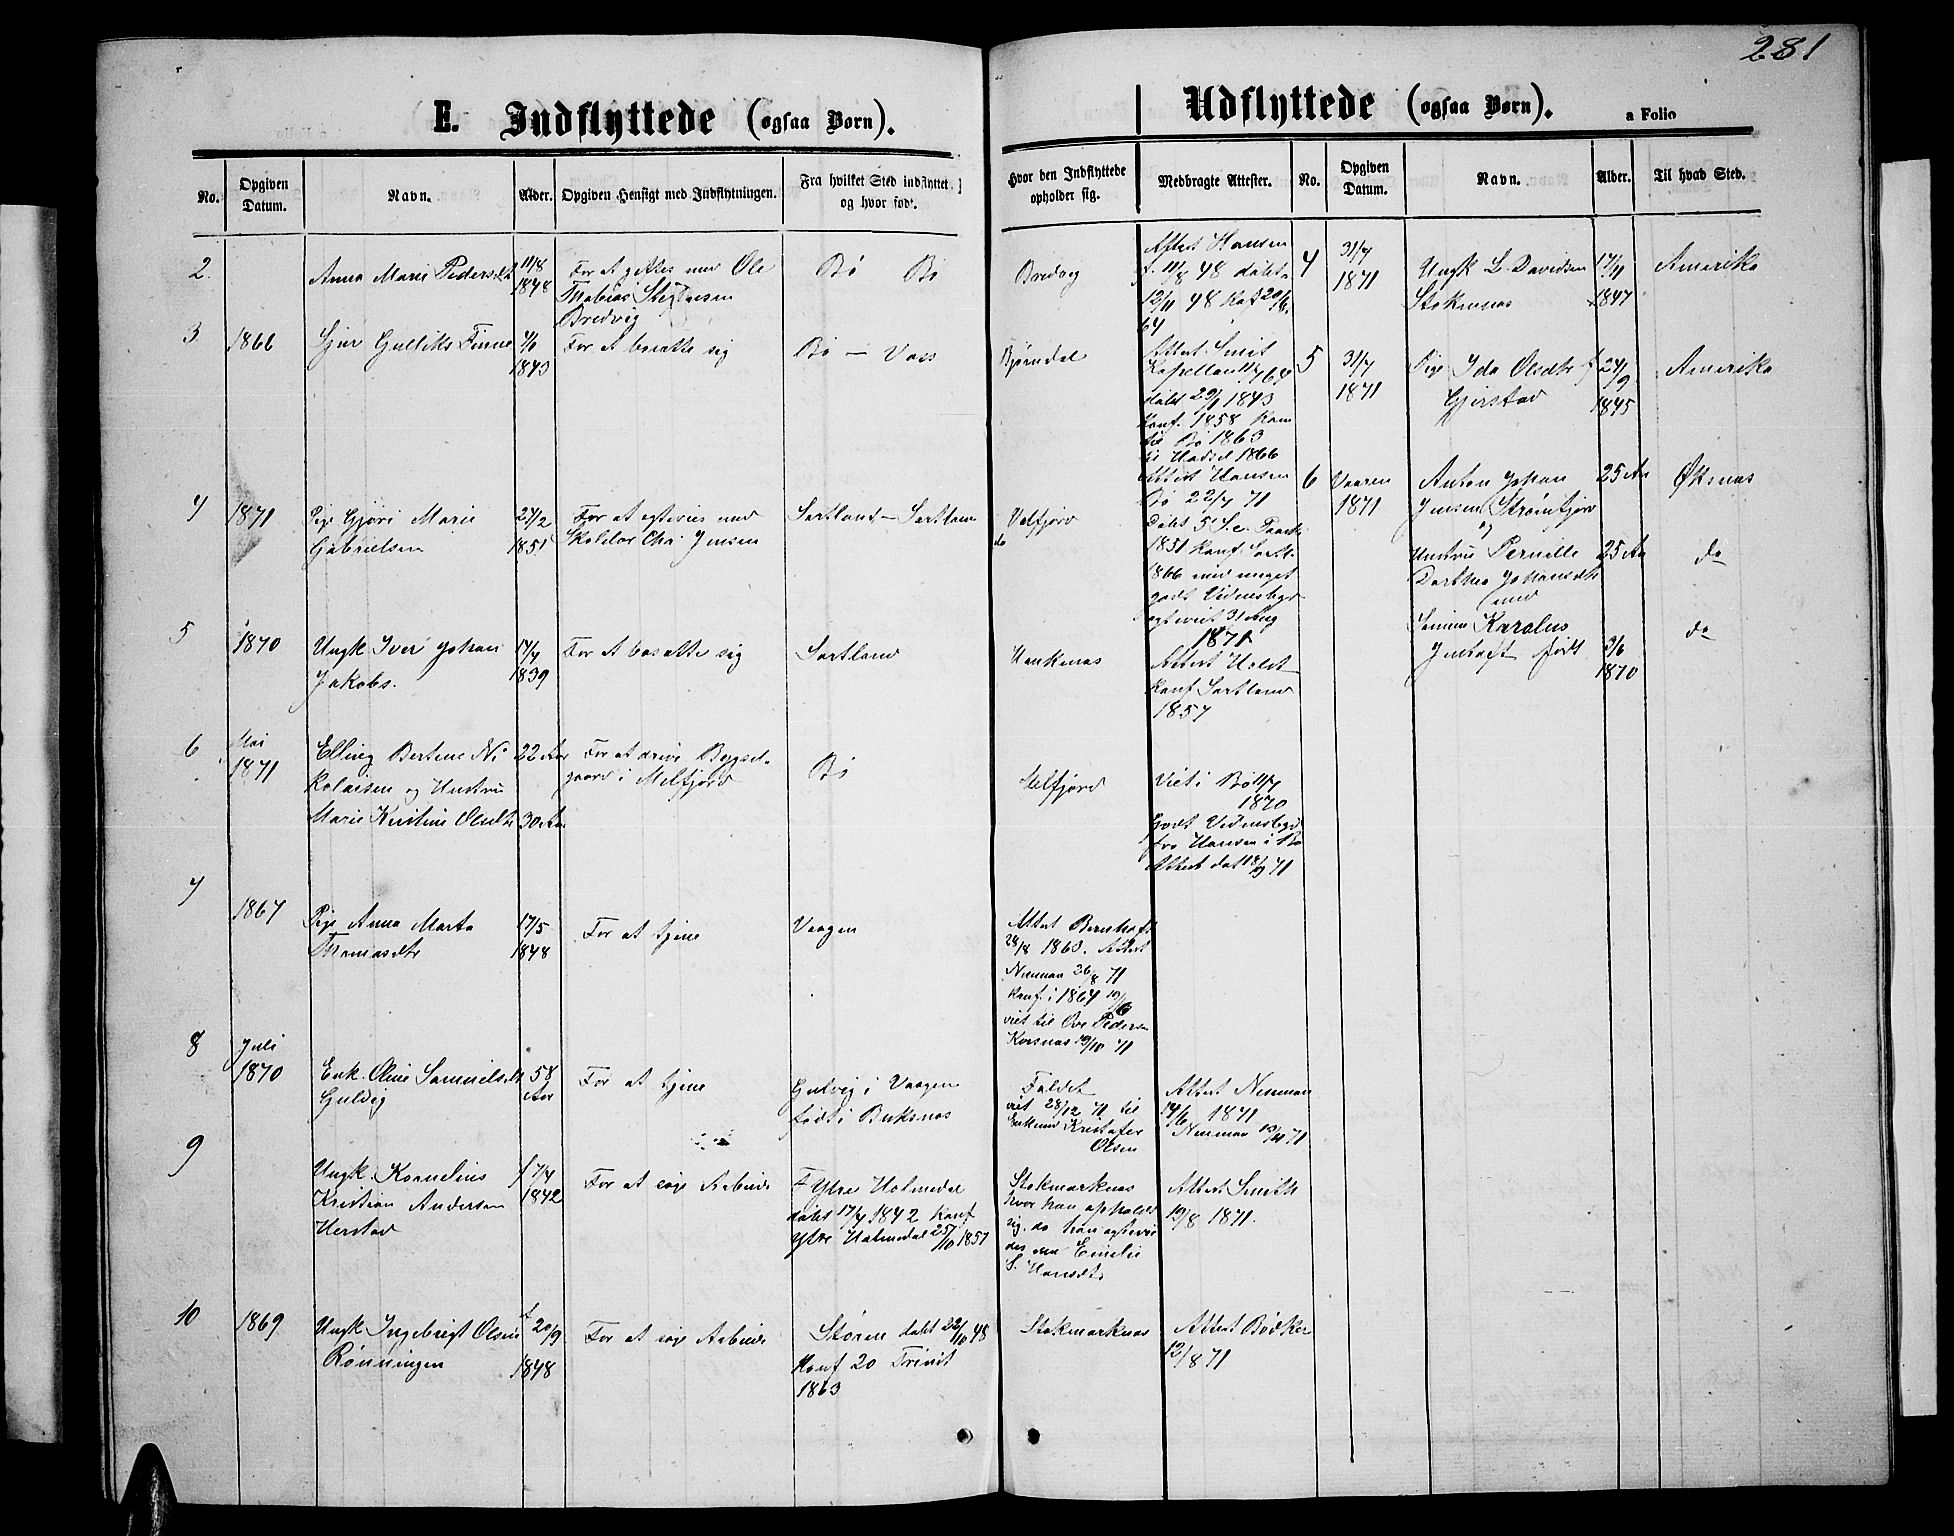 281
E. Indflyttede (ogsaa Børn).
No.
Opgiven Datum.
Navn.
Alder.
Opgiven Hensigt med Indflytningen.
Fra hvilket Sted indflyttet, og hvor født.
Hvor den Indflyttede opholder sig.
Medbragte Attester.
Udflyttede (ogsaa Børn).
a Folio
No.
Opgiven Datum.
Navn.
Alder.
Til hvad Sted.
2.
Anna Marie Pedersdt
11/8
1848
For at giftes med Ole
Tobias
Bredvig
Bø Bø
Bredvig
Attest Hansen
f. 11/8 48 døbt
12/11 48 Kof
64
3
1866
Sjur Gulliks Finne
1843
For at bosætte sig
Bø – Voss
Bjørndal
Attest Smit
Kapellan
døbt 29/1 1843
Konf. 1858 Kom
til Bø 1863
til Hadsel 1866
4
1871
Pige Gjøri Marie
Gabrielsen
27/2
1851
For at egtevies med
Skolelær Chr. Jensen
Sortland – Sortland
Attest Hansen
Bø 22/7 71
Døbt 5 S. e. Paaske
1851 Konf. Sortl.
1866 med meget
godt Vidnesbyrd
egteviet 31 Aug
1871
5
1870
Ungk Iver Johan
Jakobs.
17/7
1839
For at bosætte sig
Sortland
Haukenæs
Attest Holst
Konf Sortland
1857
6
Mai
1871
Elling Bertene Ni
kolaisen og Hustru
Marie Kirstine Olsdtr
22 Aar
30 Aar
For at drive Bygsel-
gaard i Melfjord
Bø
Melfjord
Viet i Bø 11/7
1870
Godt Vidnesbyrd
fra Hansen i Bø
Attest dat 18/9 71
7
1867
Pige Anna Marta
Thomasdtr
17/5
1848
For at tjene
Vaagen
Attest Bernhoft
28/8 1863. Attest
Neuman 26/8 71
Konf. i 1864
viet til Ove Pedersen
Korsnæs 19/10 71
8
Juli
1870
Enk. Oline Samuelsdt
Gulvig
58
Aar
For at tjene
Gulvig i Vaagen
født i Buksnæs
Faldet
viet 28/12 71 til
Enkem Kristofer
Olsen
Attest Neuman
14/6 1871
Neuman 71
9
Ungk. Kornelius
Kristian Andersen
Herstad
f 7/4
1842
For at søge Arbeide
F Ytre Holmedal
døbt 17/4 1842 Konf
Ytre Holmedal 25/10 1857
Stokmarknæs
hvor han opholdt
sig, da han egtevie
des med Emilie
S. Hansdtr
Attest Smith
19/8 1871.
10
1869
Ungk Ingebrigt Olsen
Rønningen
f 20/9
1848
For at søge Arbeide
Støren døbt 22/10 48
Konf 20 Trinit
1863
Stokmarknæs
Attest Bødker
12/8 71
4
31/7
1871
Ungk L. Davidsen
Stokmnæs
17/11
1847
Amerika
5
31/7
1871
Pige Ida Olsdtr
Gjerstad
f 24/9
1845
Amerika
6
Vaaren
1871
Anton Johan
Jensen Strømfjord
og
Hustru Pernille
Dorthea Johansdtr
med
Sønnen Karolus
Jentoft født
25 Aar
25 Aar
3/6
1870
Øksnæs
do
do